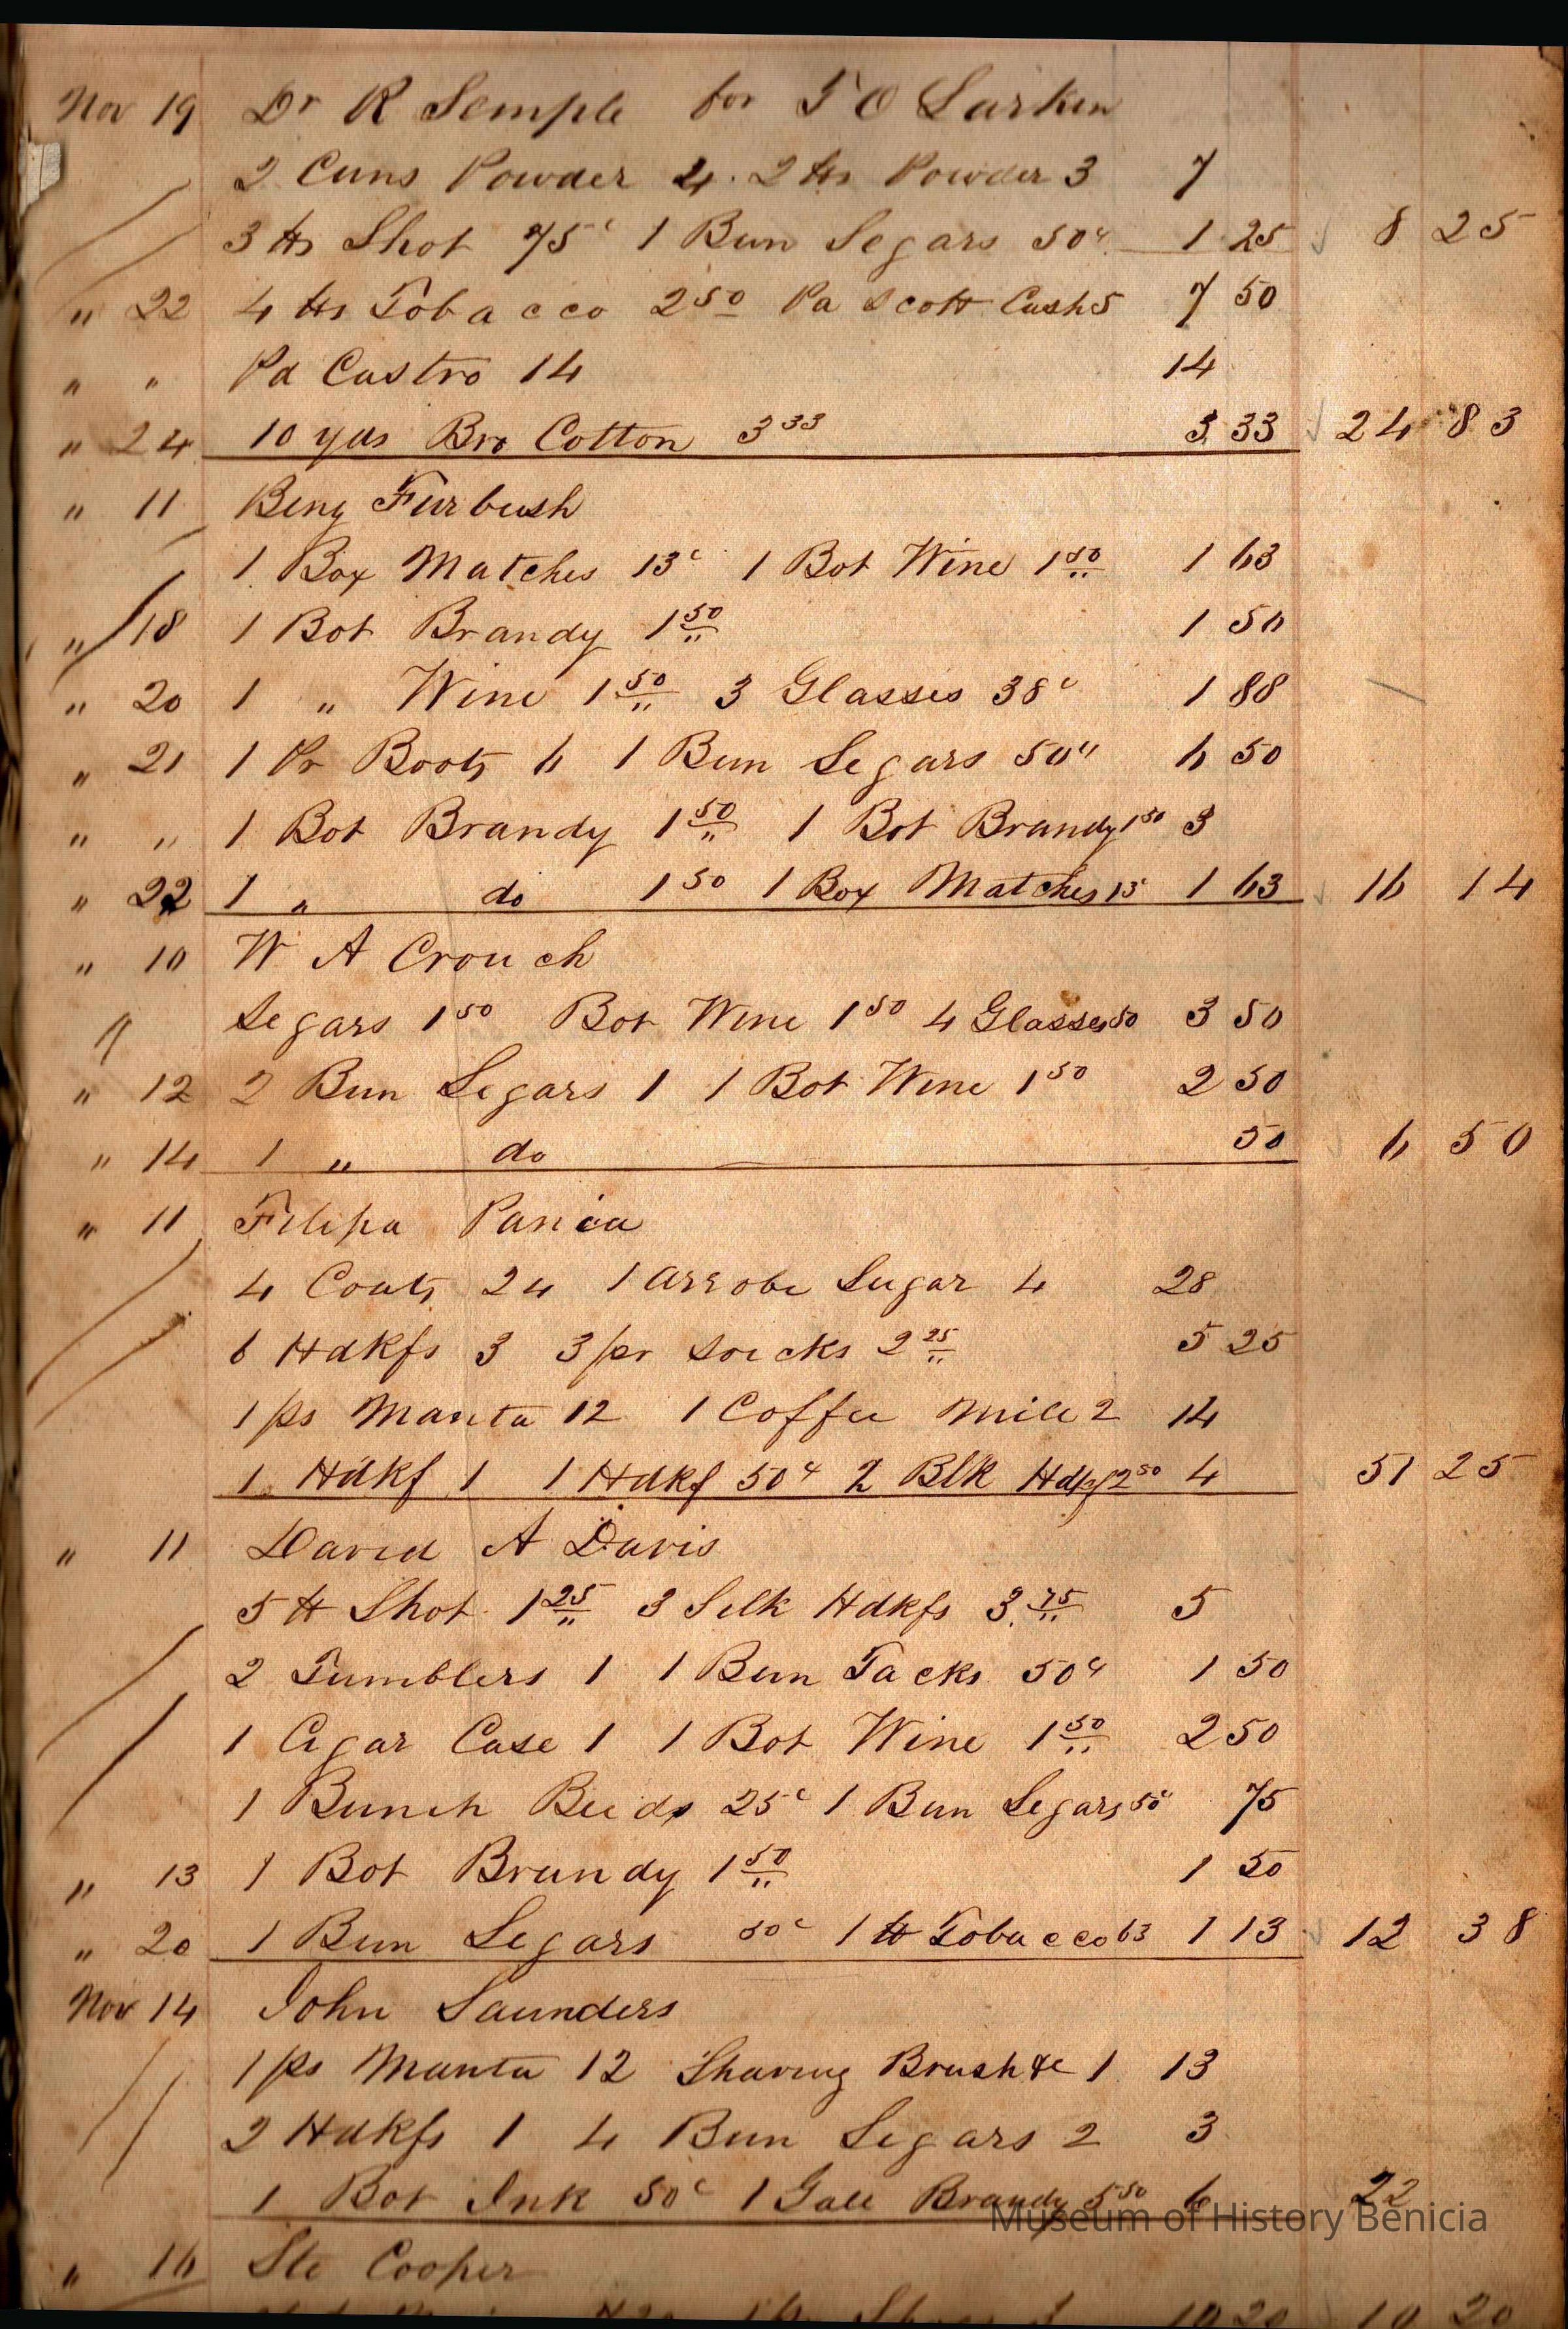 Nov 19 Dr R Semple for T O Larkin
2 Cans Powder 4. 2 lbs Powder 3 7
3 lbs Shot 75c 1 Bun Segars 50c 1 25 8 25
" 22 4 lbs Tobacco 2 50 Pa Scott Cash 5 7 50
" " Pd Castro 14 14
" 24 10 yds Bro Cotton 3 33 3 33 24 83
" 11 Benj Furbush
1 Box Matches 13c 1 Bot Wine 1 50 1 63
" 18 1 Bot Brandy 1 50 1 50
" 20 1 " Wine 1 50 3 Glasses 38c 1 88
" 21 1 Pr Boots 6 1 Bun Segars 50c 6 50
" " 1 Bot Brandy 1 50 1 Bot Brandy 1 50 3
" 22 1 " do 1 50 1 Box Matches 13 1 63 16 14
" 10 W A Crouch
Segars 1 50 Bot Wine 1 50 4 Glasses 50 3 50
" 12 2 Bun Segars 1 1 Bot Wine 1 50 2 50
" 14 1 " do 50 6 50
" 11 Filipa
4 Coats 24 1 Arrobe Sugar 4 28
6 Hdkfs 3 3 pr Socks 2 25 5 25
1 ps Manta 12 1 Coffee Mill 2 14
1 Hdkf 1 1 Hdkf 50c 2 Blk Hdkf 2 50 4 51 25
" 11 David A Davis
5 lb Shot 1 25 3 Silk Hdkfs 3.75 5
2 Tumblers 1 1 Bun Tacks 50c 1 50
1 Cigar Case 1 1 Bot Wine 1 50 2 50
1 Bunch Beeds 25c 1 Bun Segars 50c 75
" 13 1 Bot Brandy 1 50 1 50
" 20 1 Bun Segars 50c 1 lb Tobacco 63 1 13 12 38
Nov 14 John Saunders
1 ps Manta 12 Shaving Brush &c 1 13
2 Hdkfs 1 4 Bun Segars 2 3
1 Bot Ink 50c 1 Gall Brandy 5 50 6 22
Museum of History Benicia
" 16 Ste Cooper
10 20 10 20